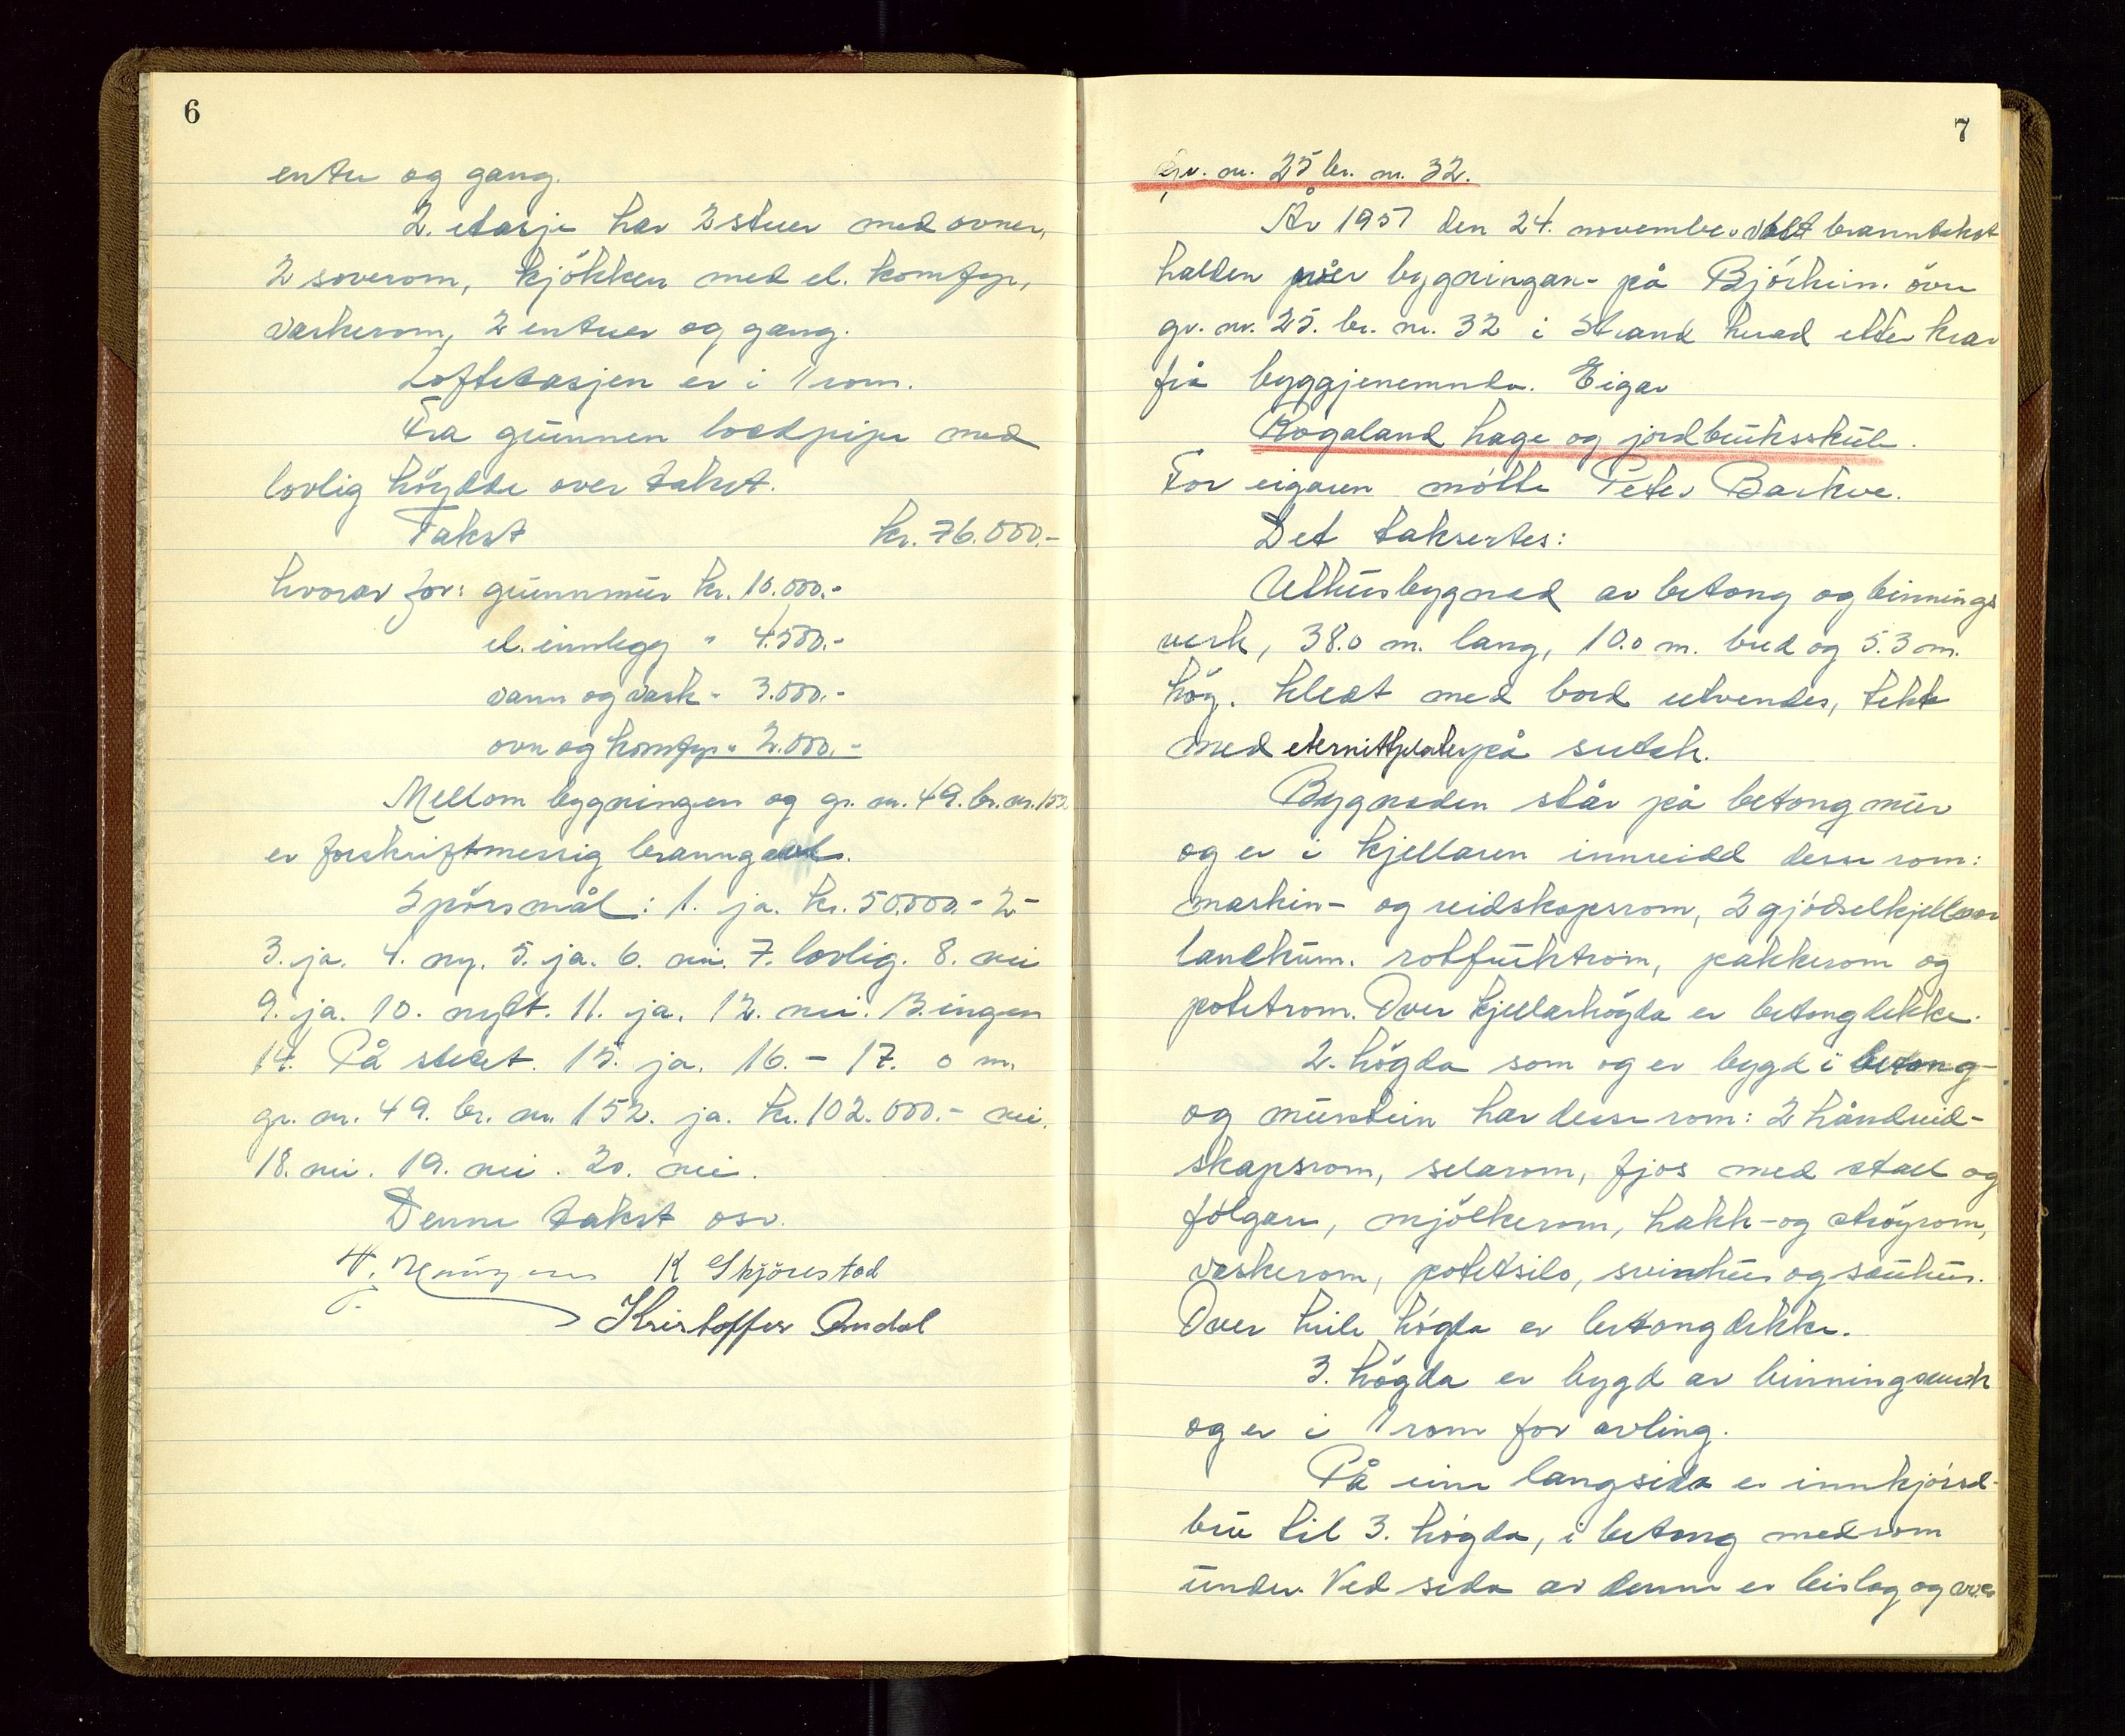 6
entre og gang.
2. etasje har 2 stuer med ovner,
2 soverom, kjökken med el. komfyr,
vaskerom, 2 entreer og gang.
Loftetasjen er i 1 rom.
Fra grunnen loedpipe med
lovlig höydde over taket.
Takst kr. 76.000.-
hvorav for: grunnmur kr. 10.000.-
el. innlegg " 4.500.-
vann og vask " 3.000.-
ovn og komfyr " 2.000.-
Mellom bygningen og gr. nr. 49. br. nr. 152
er forskriftmessig branngavl.
Spörsmål: 1. ja. kr. 50.000.- 2-
3. ja. 4. ny. 5. ja. 6. nei. 7. lovlig. 8. nei
9. ja. 10. nytt. 11. ja. 12. nei. 13. ingen
14. På stedet. 15. ja. 16. - 17. 0 m.
gr. nr. 49. br. nr. 152. ja. kr. 102.000.- nei.
18. nei. 19. nei. 20. nei.
Denne takst osv.
K Skjörestad
Kristoffer Amdal
7
Gr. nr. 25 br. nr. 32.
År 1957 den 24. november vart branntakst
halden over bygningan- på Björheim övre
gr. nr. 25. br. nr. 32 i Strand herad etter krav
frå byggjenemnda. Eigar
Rogaland hage og jordbruksskule.
For eigaren mötte Peter Barkve.
Det taksertes:
Uthusbygnad av betong og binnings
verk, 38.0 m. lang, 10.0 m. bred og 5.3 m.
hög. Kledt med bord utvendes, tekt
med eternittplater på sutak.
Bygnaden står på betongmur
og er i kjellaren innreidd desse rom:
maskin- og reidskapsrom, 2 gjödselkjellarar
landkum. rotfruktrom, pakkerom og
potetrom. Over kjellarhögda er betongdekke.
2. högda som og er bygd i betong-
og murstein har desse rom: 2 håndreid-
skapsrom, selarom, fjos med stall og
folgarn, mjölkerom, hakk- og ströyrom,
vaskerom, potetsilo, svinehus og sauhus.
Over heile högda er betongdekke.
3. högda er bygd av binningsverk
og er i 1 rom for avling.
På eine langsida er innkjörsel-
bru til 3. högda, i betong med rom
under. Ved sida av denne er beislag og over